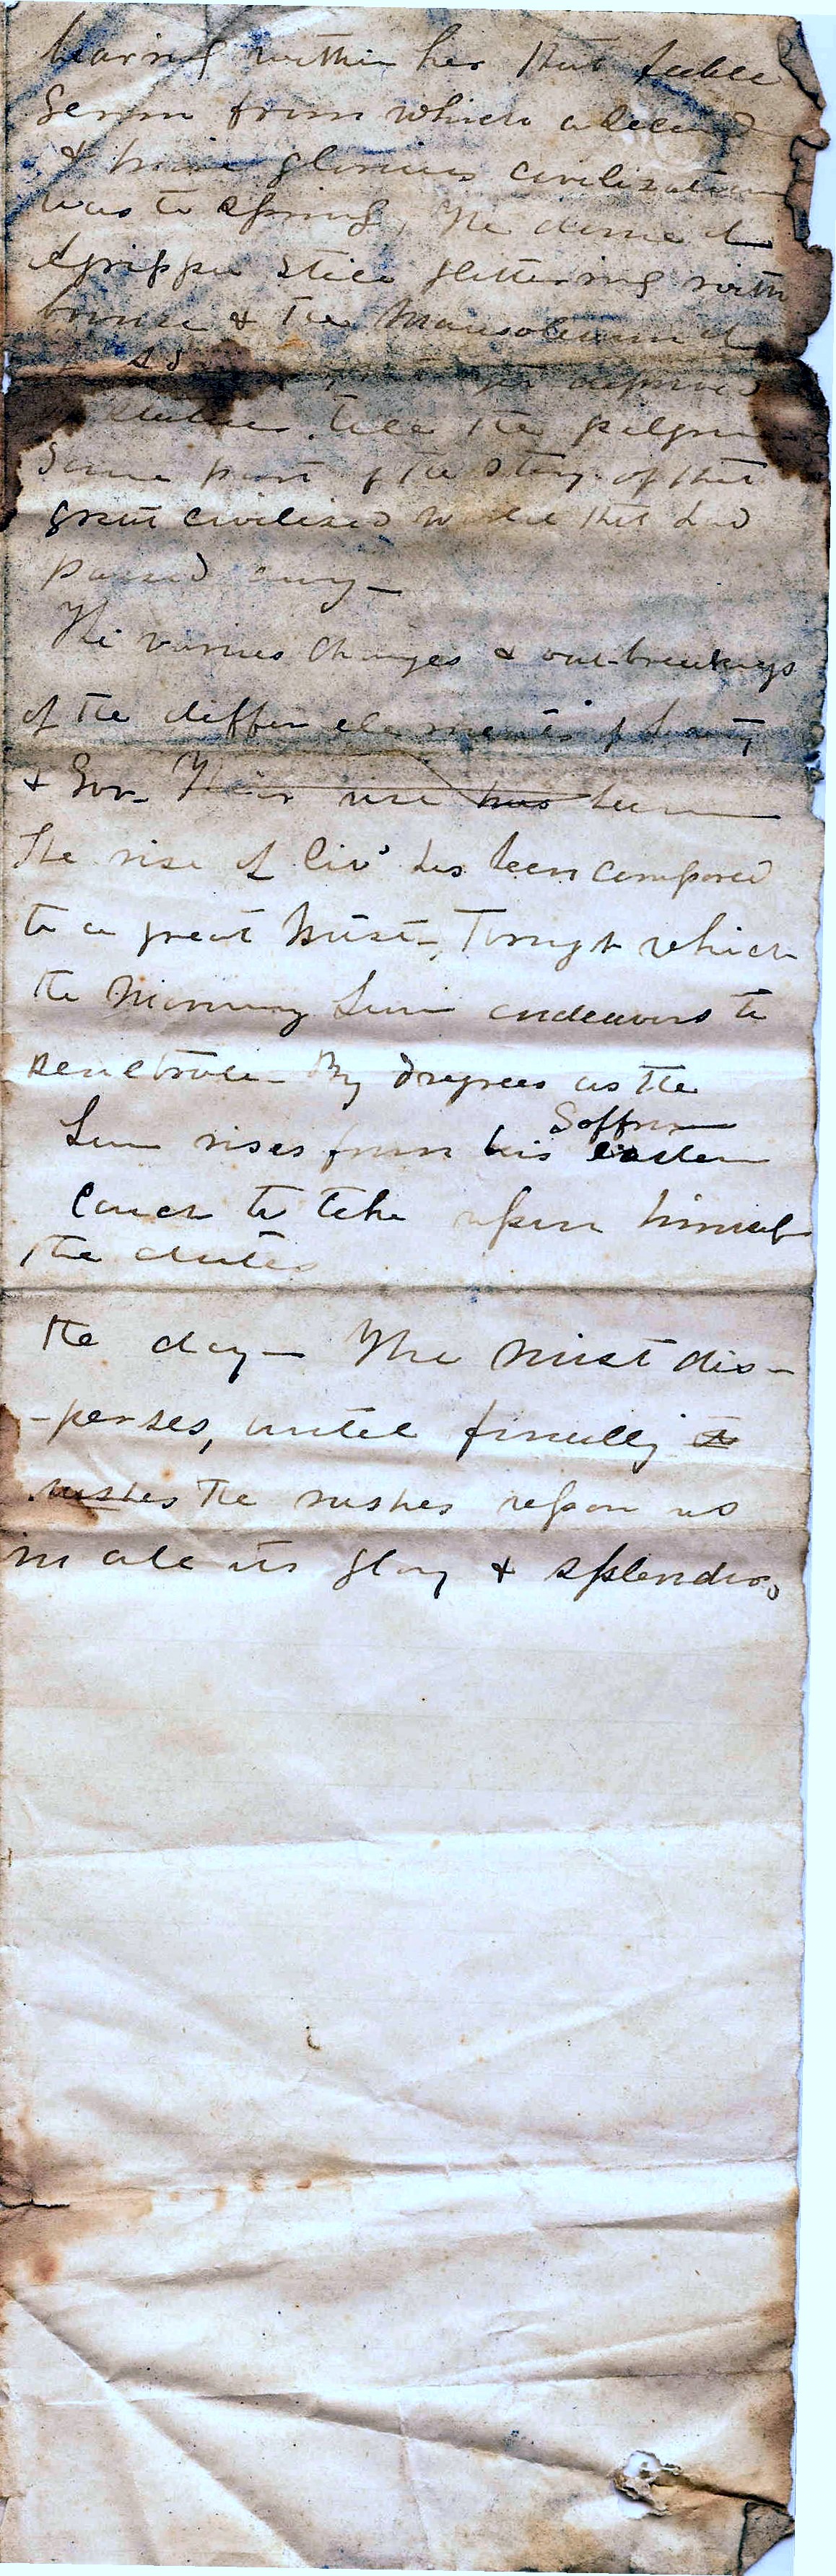 bearing within her that feeble
Germ from which a second
& more glorious civilization
was to spring, The dome of
Agrippa still glittering with
bronze & the Mausoleum of
deprived
statues tell the pilgrim
Some part of the story of that
great civilized world that had
passed away –
The various changes & out-breakings
of the differ elements of
& Gov – Their rise has been
The rise of Civ' has been compared
to a great Mist, Torught which
the Morning Sun endeavors to
penetrate – By degrees as the
Soffron
Sun rises from his eastern
Couch to take upon himself
the duties
the day – The Mist dis-
-perses, until finally
rushes the rushes upon us
in all its glory & splendor,